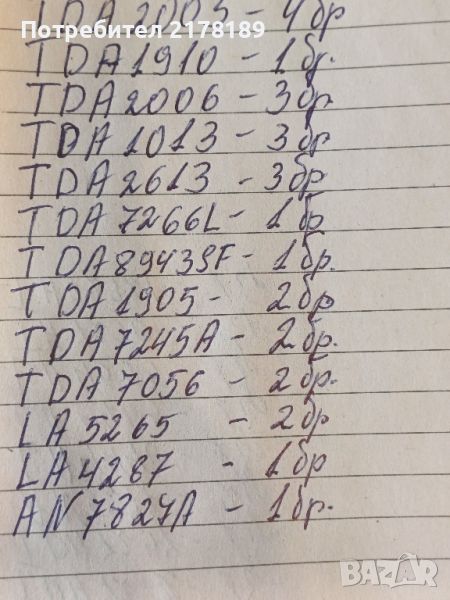 TDA 2005 - 4бр
Потребител 2178189
TDA 1910 - 1бр.
TDA 2006 - 3бр
TDA 1013 - 3бр
TDA 2613 - 3бр
TDA 7266L - 1бр
TDA 8943SF - 1бр.
TDA 1905 - 2бр
TDA 7245A - 2бр.
TDA 7056 - 2бр.
LA 5265 - 2бр
LA 4287 - 1бр
AN 7824A - 1бр.
BAZAR